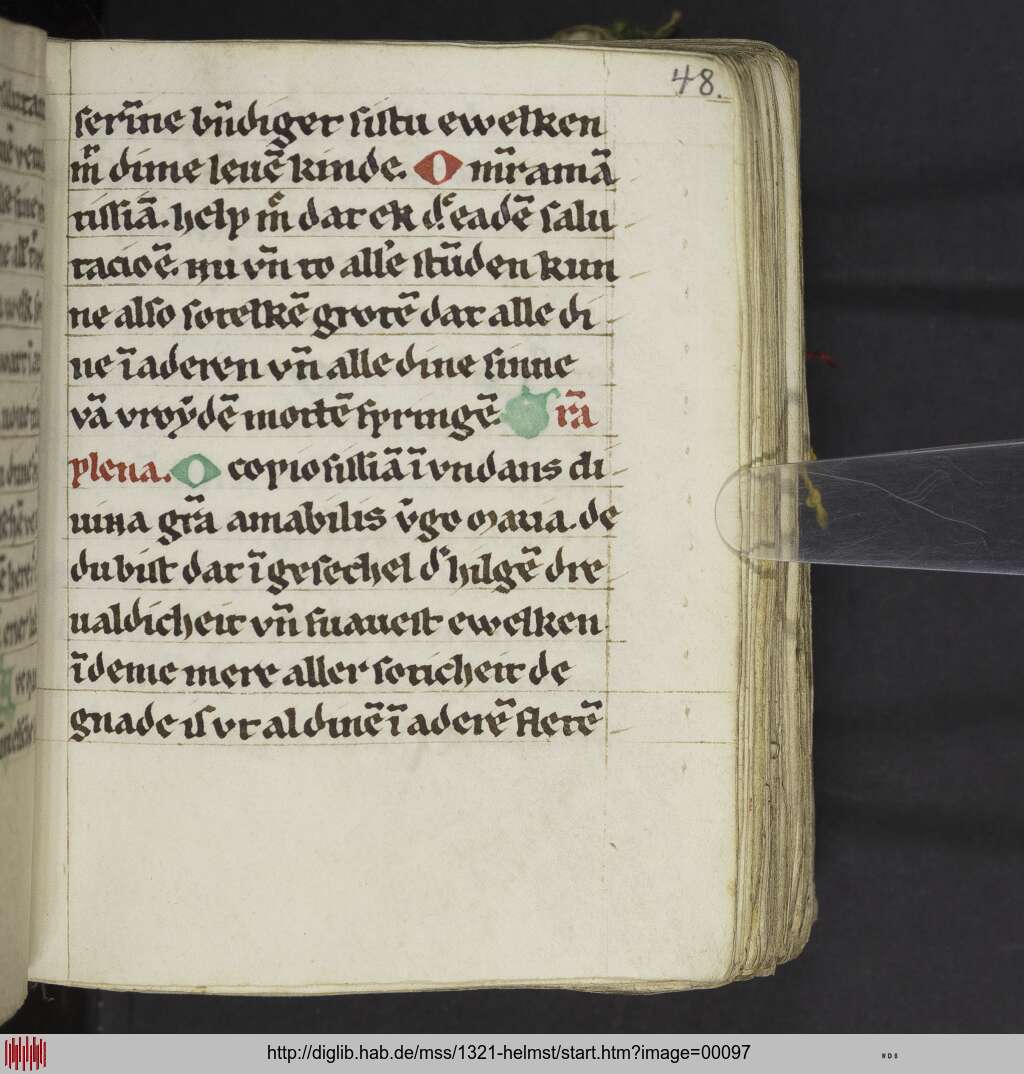 48.
serīne bn̄diger sistu ewelken
mͬ dime leuē kinde. O mr̄ amā
tissiā. help mͬ dat ek dͤ eadē salu
tacioē. nu vn̄ to allͤ stūden kun
ne also sotelkē grotē dat alle di
ne ī aderen vn̄ alle dine sinne
vā vroÿdē mottē springē. Gr̄a
plena. O copiosissiā ī vndans di
uina gr̄a amabilis v̄go maria. de
du bist dat ī gesechel dͤ hilgē dre
ualdicheit vn̄ suauest ewelken
ī deme mere aller soticheit de
gnade is vt al dinē ī aderē fletē
http://diglib.hab.de/mss/1321-helmst/start.htm?image=00097